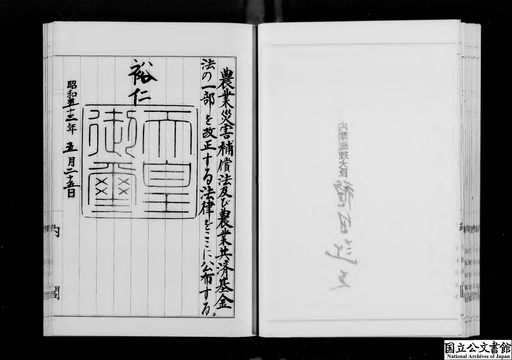 農業災害補償法及び農業共済基金
法の一部を改正する法律をここに公布する。
裕仁
天皇
御璽
昭和五十三年五月二十五日
内閣
内閣総理大臣 福田赳夫
国立公文書館
National Archives of Japan